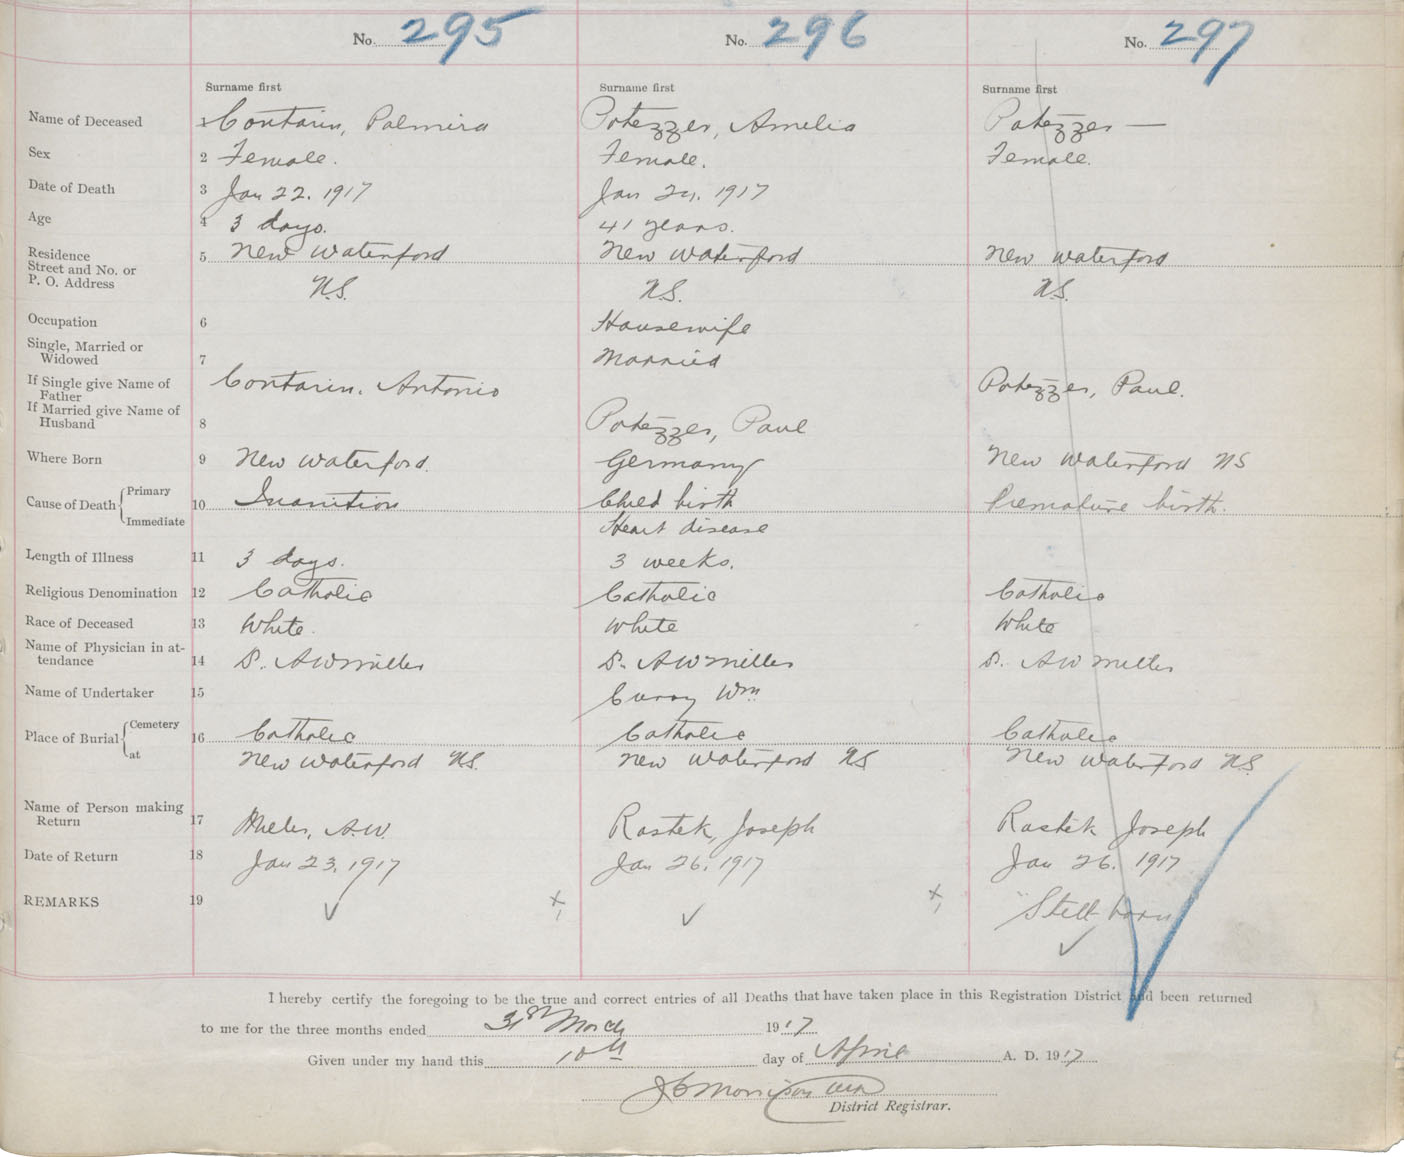 No. 295 No. 296 No. 297
Surname first Surname first Surname first
Name of Deceased 1 Contarin, Palmira Potezzer, Amelia Potezzer —
Sex 2 Female. Female. Female.
Date of Death 3 Jan 22. 1917 Jan 24. 1917
Age 4 3 days. 41 years.
Residence 5 New Waterford New Waterford New Waterford
Street and No. or
P. O. Address N.S. N.S. N.S.
Occupation 6 Housewife
Single, Married or
Widowed 7 Married
If Single give Name of
Father Contarin, Antonio Potezzer, Paul.
If Married give Name of
Husband 8 Potezzer, Paul
Where Born 9 New Waterford. Germany New Waterford NS
Cause of Death { Primary 10 Inanition Child birth Premature birth.
Immediate Heart disease
Length of Illness 11 3 days. 3 weeks.
Religious Denomination 12 Catholic Catholic Catholic
Race of Deceased 13 White. White White
Name of Physician in at-
tendance 14 D. A W Miller D. A W Miller D. A W Miller
Name of Undertaker 15 Curry Wm
Place of Burial { Cemetery 16 Catholic Catholic Catholic
at New Waterford N.S. New Waterford NS New Waterford N.S.
Name of Person making
Return 17 A.W. Rastek, Joseph Rastek Joseph
Date of Return 18 Jan 23, 1917 Jan 26, 1917 Jan 26. 1917
REMARKS 19 "Still born"
I hereby certify the foregoing to be the true and correct entries of all Deaths that have taken place in this Registration District and been returned
to me for the three months ended 31st March 1917
Given under my hand this 10th day of April A. D. 1917
Morrison
District Registrar.